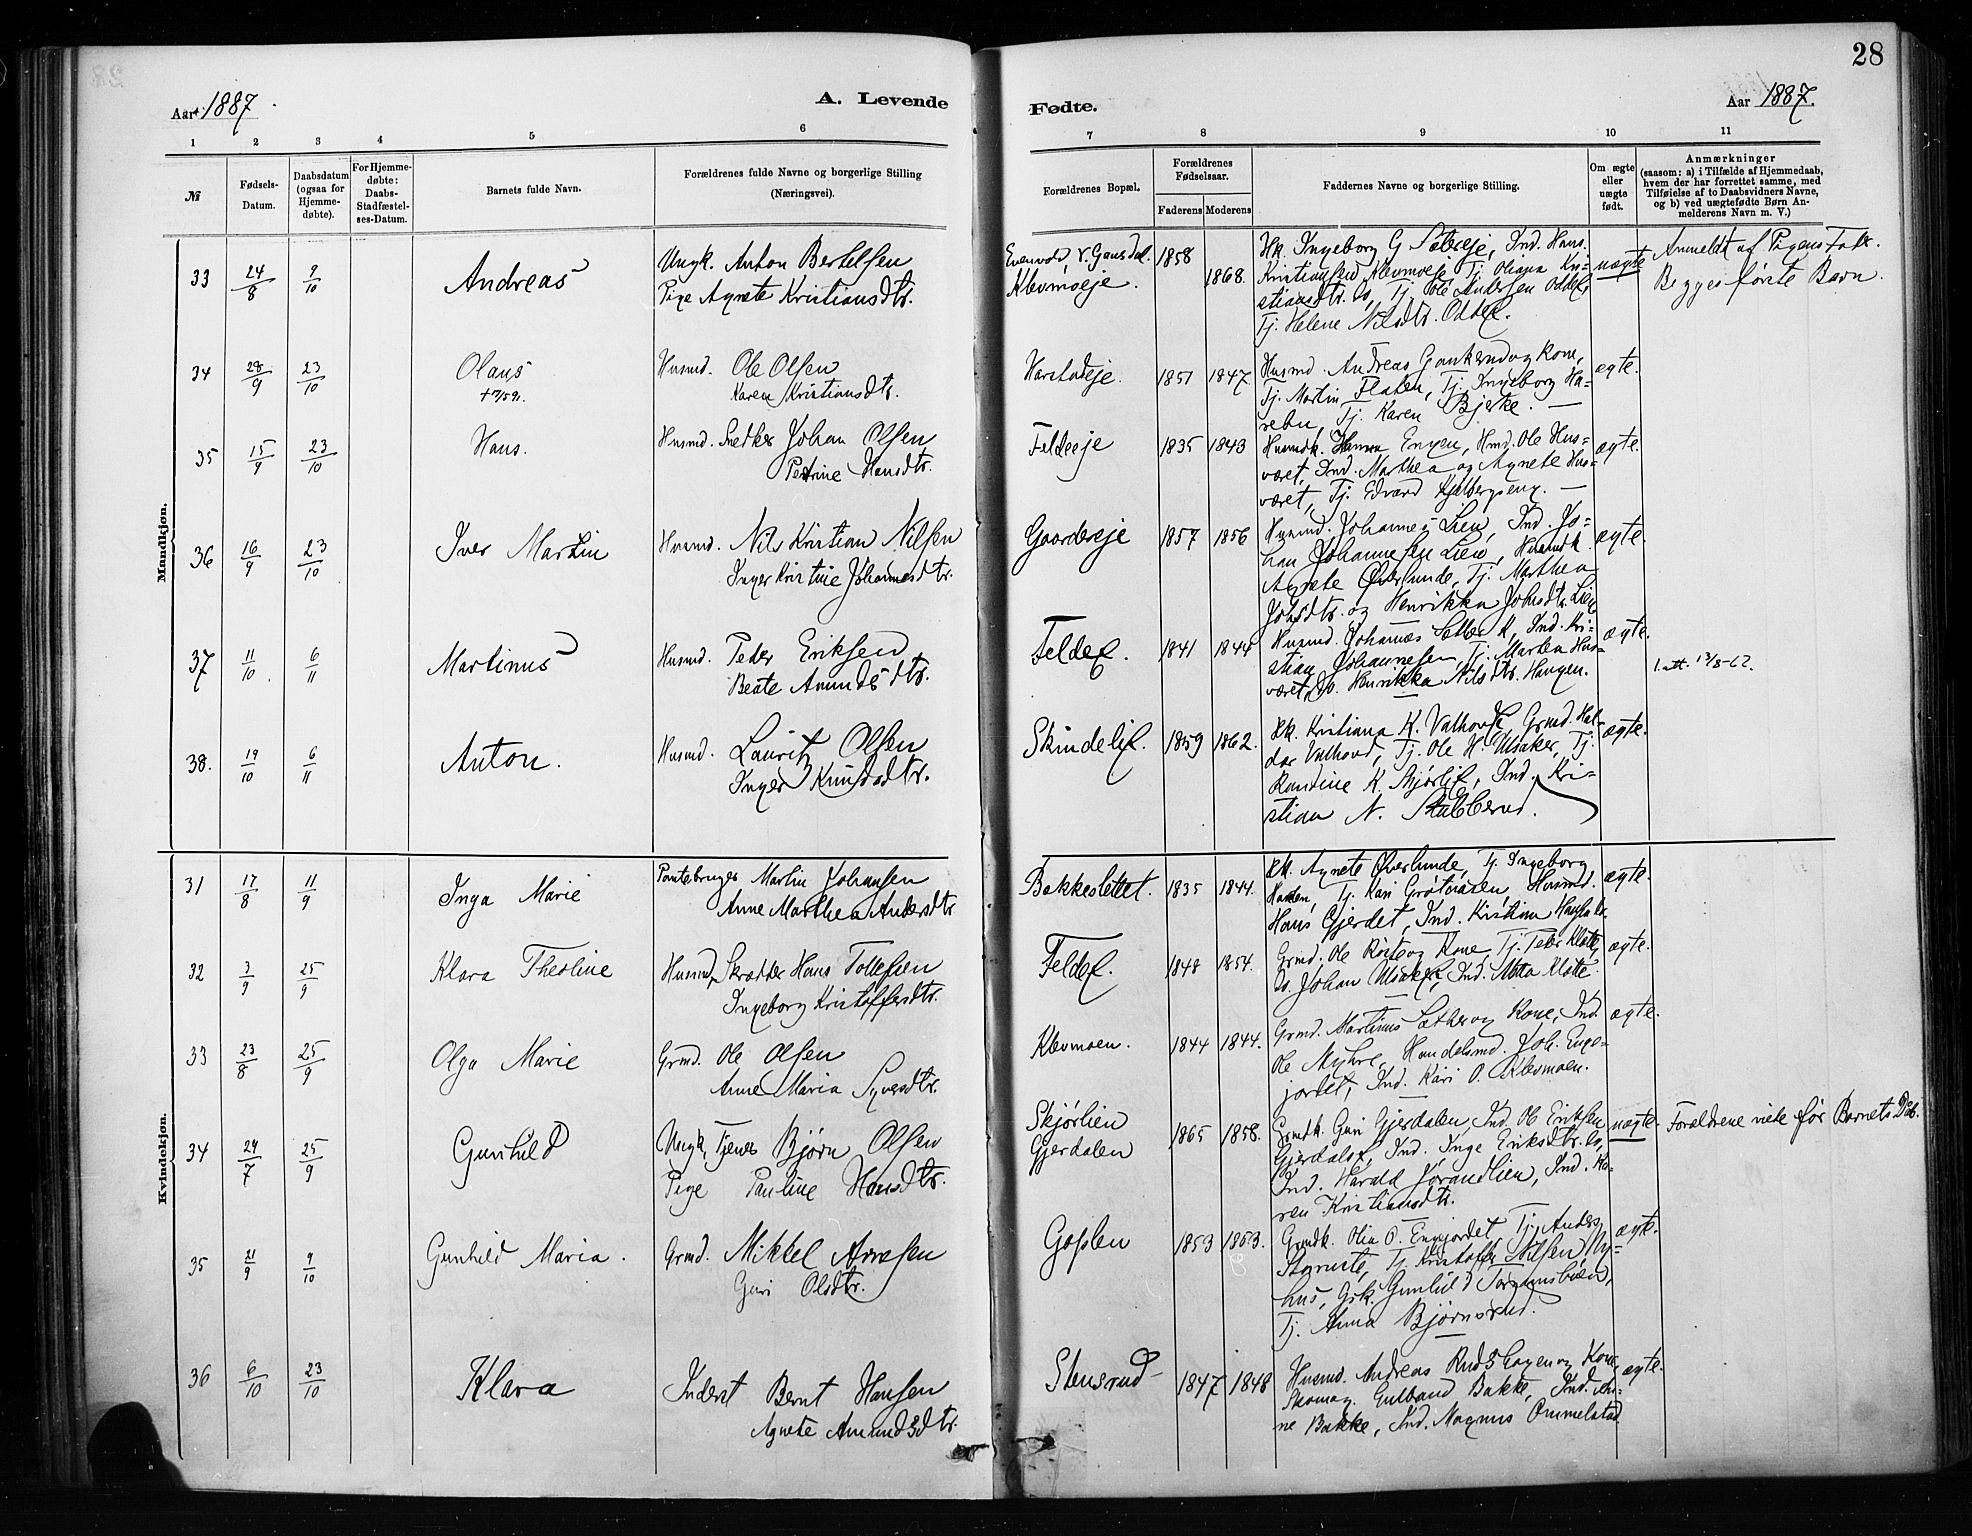 28
Aar 1887.
A. Levende
Fødte.
Aar 1887.
1 2 3 4 5 6
7 8 9 10 11
№
Fødsels-
Datum.
Daabsdatum
(ogsaa for
Hjemme-
døbte).
For Hjemme-
døbte:
Daabs-
Stadfæstel-
ses-Datum.
Barnets fulde Navn.
Forældrenes fulde Navne og borgerlige Stilling
(Næringsvei).
Forældrenes Bopæl.
Forældrenes
Fødselsaar.
Faderens Moderens
Faddernes Navne og borgerlige Stilling.
Om ægte
eller
uægte
født.
Anmærkninger
(saasom: a) i Tilfælde af Hjemmedaab,
hvem der har forrettet samme, med
Tilføielse af to Daabsvidners Navne,
og b) ved uægtefødte Børn An-
melderens Navn m. V.)
Mandkjøn.
33 24/8 9/10 Andreas
Ungk. Anton Bertelsen
Pige Agnete Kristiansdtr.
Klevmoeje.
1858
1868.
Kk. Ingeborg G Sætereje, Ind. Hans
Kristiansen Klevmoeje Tj. Oliana Kri-
stiansdtr. do, Tj. Ole Andersen Oddef,
Tj. Helene Nilsdtr. Oddef.
uægte
Anmeldt af Pigens Fader.
Begges første Barn.
34 28/9 23/10 Olaus
Husmd. Ole Olsen
Karen Kristiansdtr.
Harstadeje. 1851 1847
Husmd. Andreas Gankerud og Kone,
Tj. Martin Flaten, Tj. Ingeborg Ha-
rebu, Tj. Karen Bjerke. —
ægte.
35 15/9 23/10 Hans.
Husmd. Snedker Johan Olsen
Petrine Hansdtr.
Feldeeje 1835 1843
Husmdk. Hanna Engen, Hmd. Ole Hus-
været, Ind. Marthea og Agnete Hus-
været, Tj. Edvard Kjelbergseng. —
ægte.
36 16/9 23/10 Iver Martin
Husmd. Nils Kristian Nilsen
Inger Kristine Johannesdtr.
Gaardereje 1857 1856
Husmd. Johannes Lien, Ind. Jo-
han Johannesen Lien, Husmdk.
Agnete Øverlunde, Tj. Marthea
Johsdtr. og Henrikka Johsdtr. Lien
ægte.
37 11/10 6/11 Martinus
Husmd. Peder Eriksen
Beate Amundsdtr.
Feldef. 1841 1844
Husmd. Johannes Sæter, Ind. Kri-
stian Johannesen, Tj. Marten Hus-
været, do. Henrikka Nilsdtr. Haugen.
ægte.
38. 19/10 6/11 Anton.
Husmd. Lauritz Olsen
Inger Knudsdtr.
Skindelif. 1859 1862.
Kk. Kristiana K. Valhovd, Grmd. Hal-
dor Valhovd, Tj. Ole H. Ulsaker, Tj.
Randine K. Bjørlif, Ind. Kri-
stian N. Stubberud.
ægte.
Kvindekjøn.
31 17/8 11/9 Inga Marie
Pantebruger Martin Johansen
Anne Marthea Andersdtr
Bakkeslettet. 1835 1844.
Kk. Agnete Øverlunde, Tj. Ingeborg
Haken, Tj. Kari Grøtaasen, Husmd.
Hans Gjerdet, Ind. Kristian
ægte.
32 3/9 25/9 Klara Theoline
Husmd, Skrædder Hans Tollefsen
Ingeborg Kristoffersdtr.
Feldef. 1848 1854.
Grmd. Ole Roste og Kone, Tj. Peder Kløtte,
do. Johan Ulsaker, Ind. Kløtte.
ægte.
33 23/8 25/9 Olga Marie
Grmd. Ole Olsen
Anne Maria Syversdtr.
Klevmoen. 1844 1844.
Grmd. Martinus Sæther og Kone, Ind.
Ole Myhre, Handelsmd. Joh. Enge-
jordet, Ind. Kari O. Klevmoen.
ægte.
34 24/7 25/9 Gunhild
Ungk, Tjener Bjørn Olsen
Pige Pauline Hansdtr.
Skjørlien
Gjerdalen
1865 1858.
Grmdk. Guri Gjerdalen, Ind. Ole Eriksen
Gjerdalsf, Ind. Inge Eriksdtr. do,
Ind. Harald Jørandlien, Ind. Ka-
ren Kristiansdtr.
uægte.
Forældrene viede før Barnets Daab.
35 21/9 9/10 Gunhild Maria.
Grmd. Mikkel Arnesen
Guri Olsdtr.
Goplen 1853 1853.
Grmdk. Olia O. Engjordet, Tj. Anders
Storruste, Tj. Kristoffer Nilsen Ny-
hus, Gsk. Gunhild
Tj. Anna Bjørnsrud.
ægte.
36 6/10 23/10 Klara
Inderst Bernt Hansen
Agnete Amundsdtr.
Stensrud 1847 1848
Husmd. Andreas Rudshagen og Kone,
Skomag. Gulbrand Bakke, Ind. An-
ne Bakke, Ind. Magnus Ommelstad.
ægte.